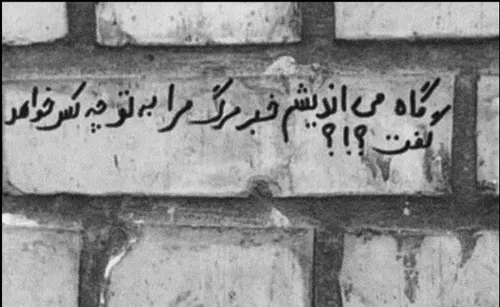 گاه می اندیشم خبر مرگ مرا به تو چه کس خواهد
گفت ؟!؟